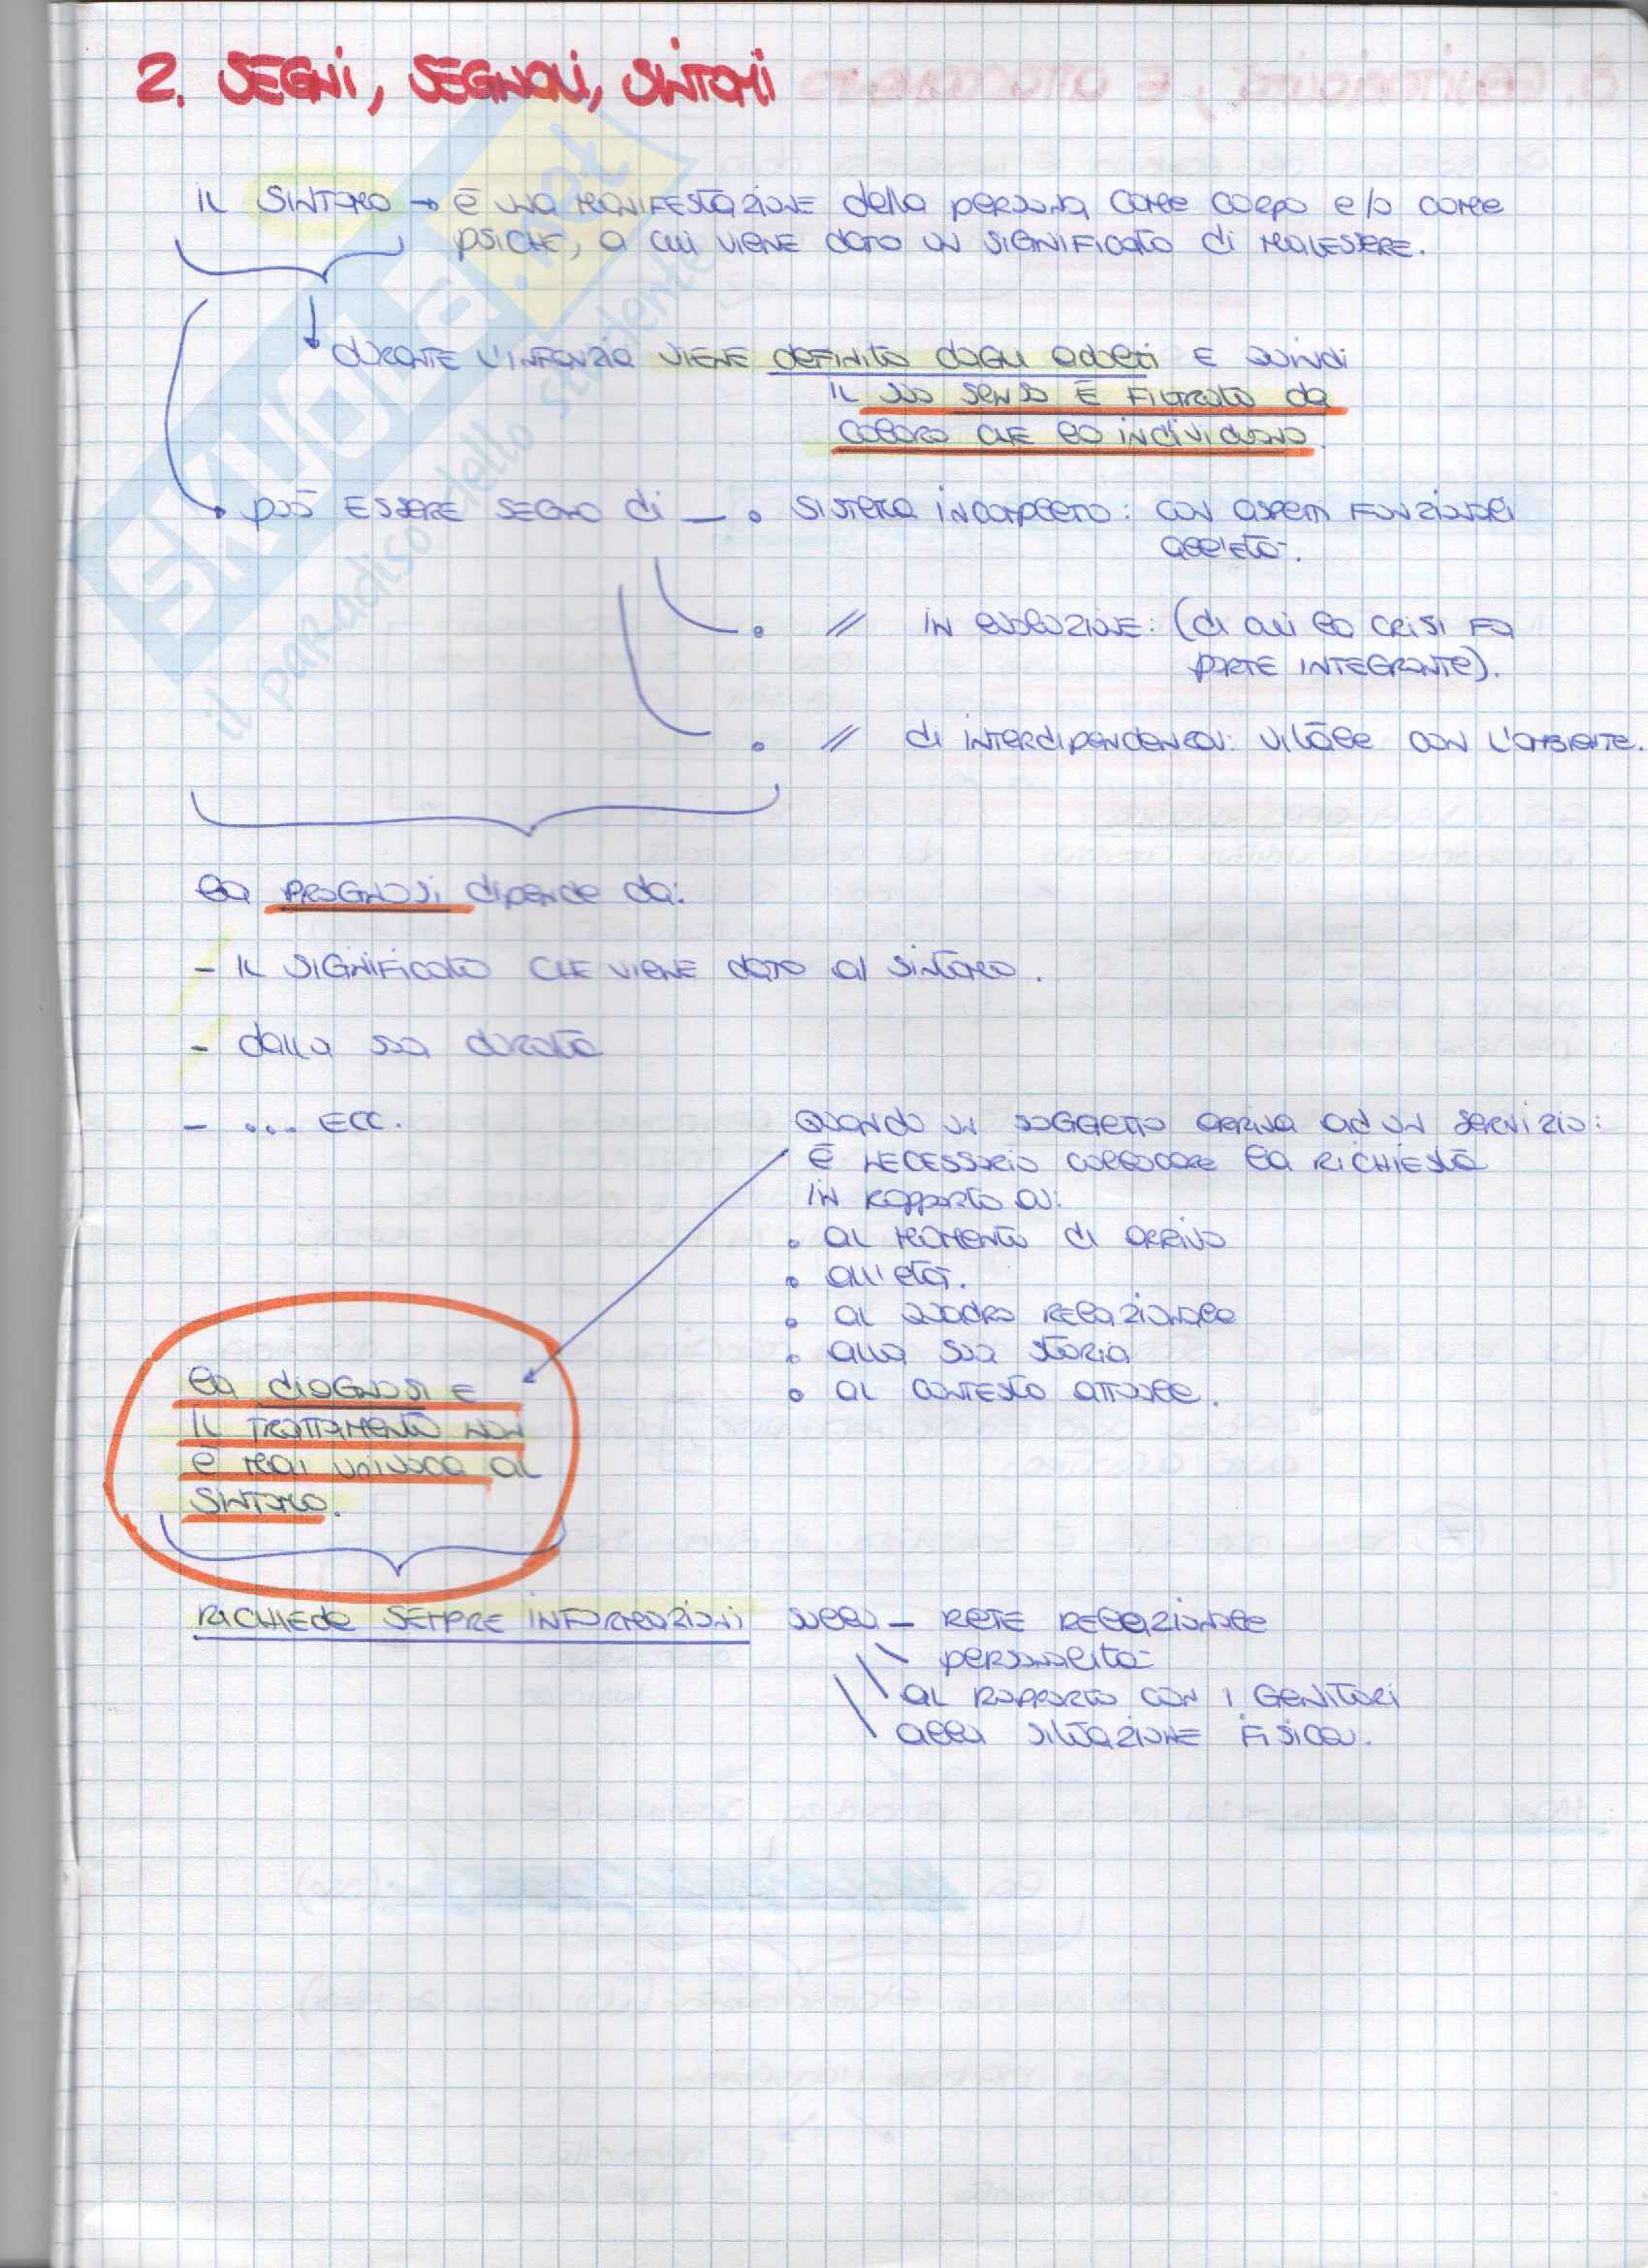 2. SEGNI, SEGNALI, SINTOMI
IL SINTOMO → È UNA MANIFESTAZIONE della persona come corpo e/o come
PSICHE, a cui VIENE dato un SIGNIFICATO di MALESSERE.
DURANTE L'INFANZIA VIENE definito dagli adulti E quindi
IL suo senso È FILTRATO da
coloro CHE lo individuano.
può ESSERE SEGNO di — • SISTEMA INCOMPLETO: con aspetti FUNZIONALI
all'età.
• // IN evoluzione: (di cui la CRISI fa
parte INTEGRANTE).
• // di interdipendenza: vitale con l'ambiente.
la PROGNOSI dipende da:
- IL SIGNIFICATO CHE VIENE dato al sintomo.
- dalla sua durata
- ... ECC.
Quando un soggetto arriva ad un servizio:
È NECESSARIO collocare la RICHIESTA
IN rapporto a:
• al momento di arrivo
• all'età.
• al quadro relazionale
• alla sua storia
• al contesto attuale.
la diagnosi E
IL TRATTAMENTO NON
È mai univoca al
SINTOMO.
RICHIEDE SEMPRE INFORMAZIONI sulla — RETE RELAZIONALE
personalità
al rapporto con i genitori
alla situazione fisica.
SKUOLA.net
il paradiso dello studente